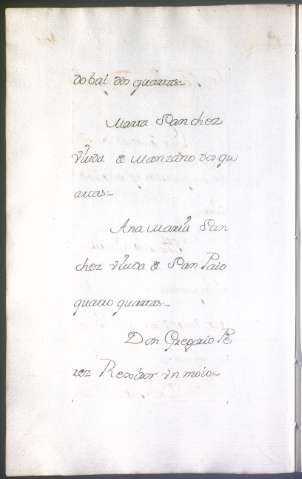 dobal dos quartas
Maria Sanchez
viuda de Manzano dos qu
artas
Ana Maria San
chez viuda de San Paio
quatro quartas
Don Gregorio Pe
rez Rexidor un moio